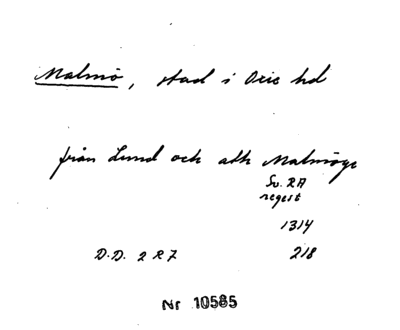 Malmö, stad i Oxie hd
från Lund och ath Malmöge
Sv. RA
regest
1314
D.D. 2 R 7 218
Nr 10585